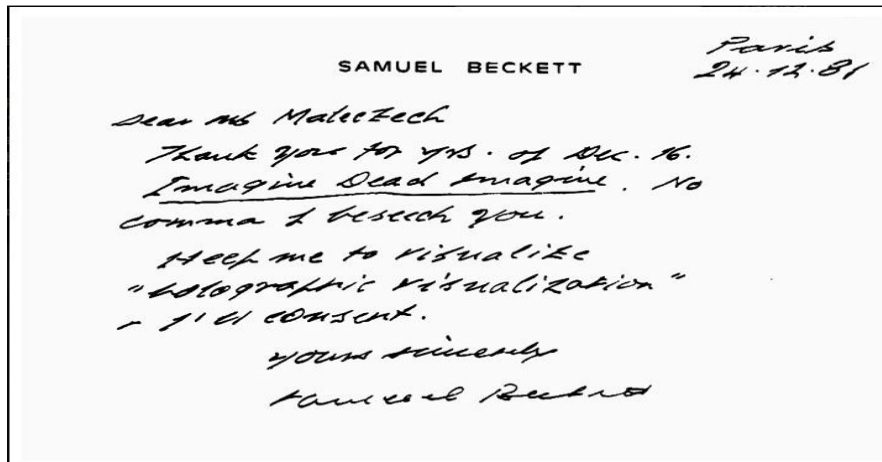 SAMUEL BECKETT
Paris
24.12.81
Dear Ms Maleczech
Thank you for yrs. of Dec. 16.
Imagine Dead Imagine. No
comma I beseech you.
Help me to visualize
"holographic visualization"
& I'll consent.
Yours sincerely
Samuel Beckett